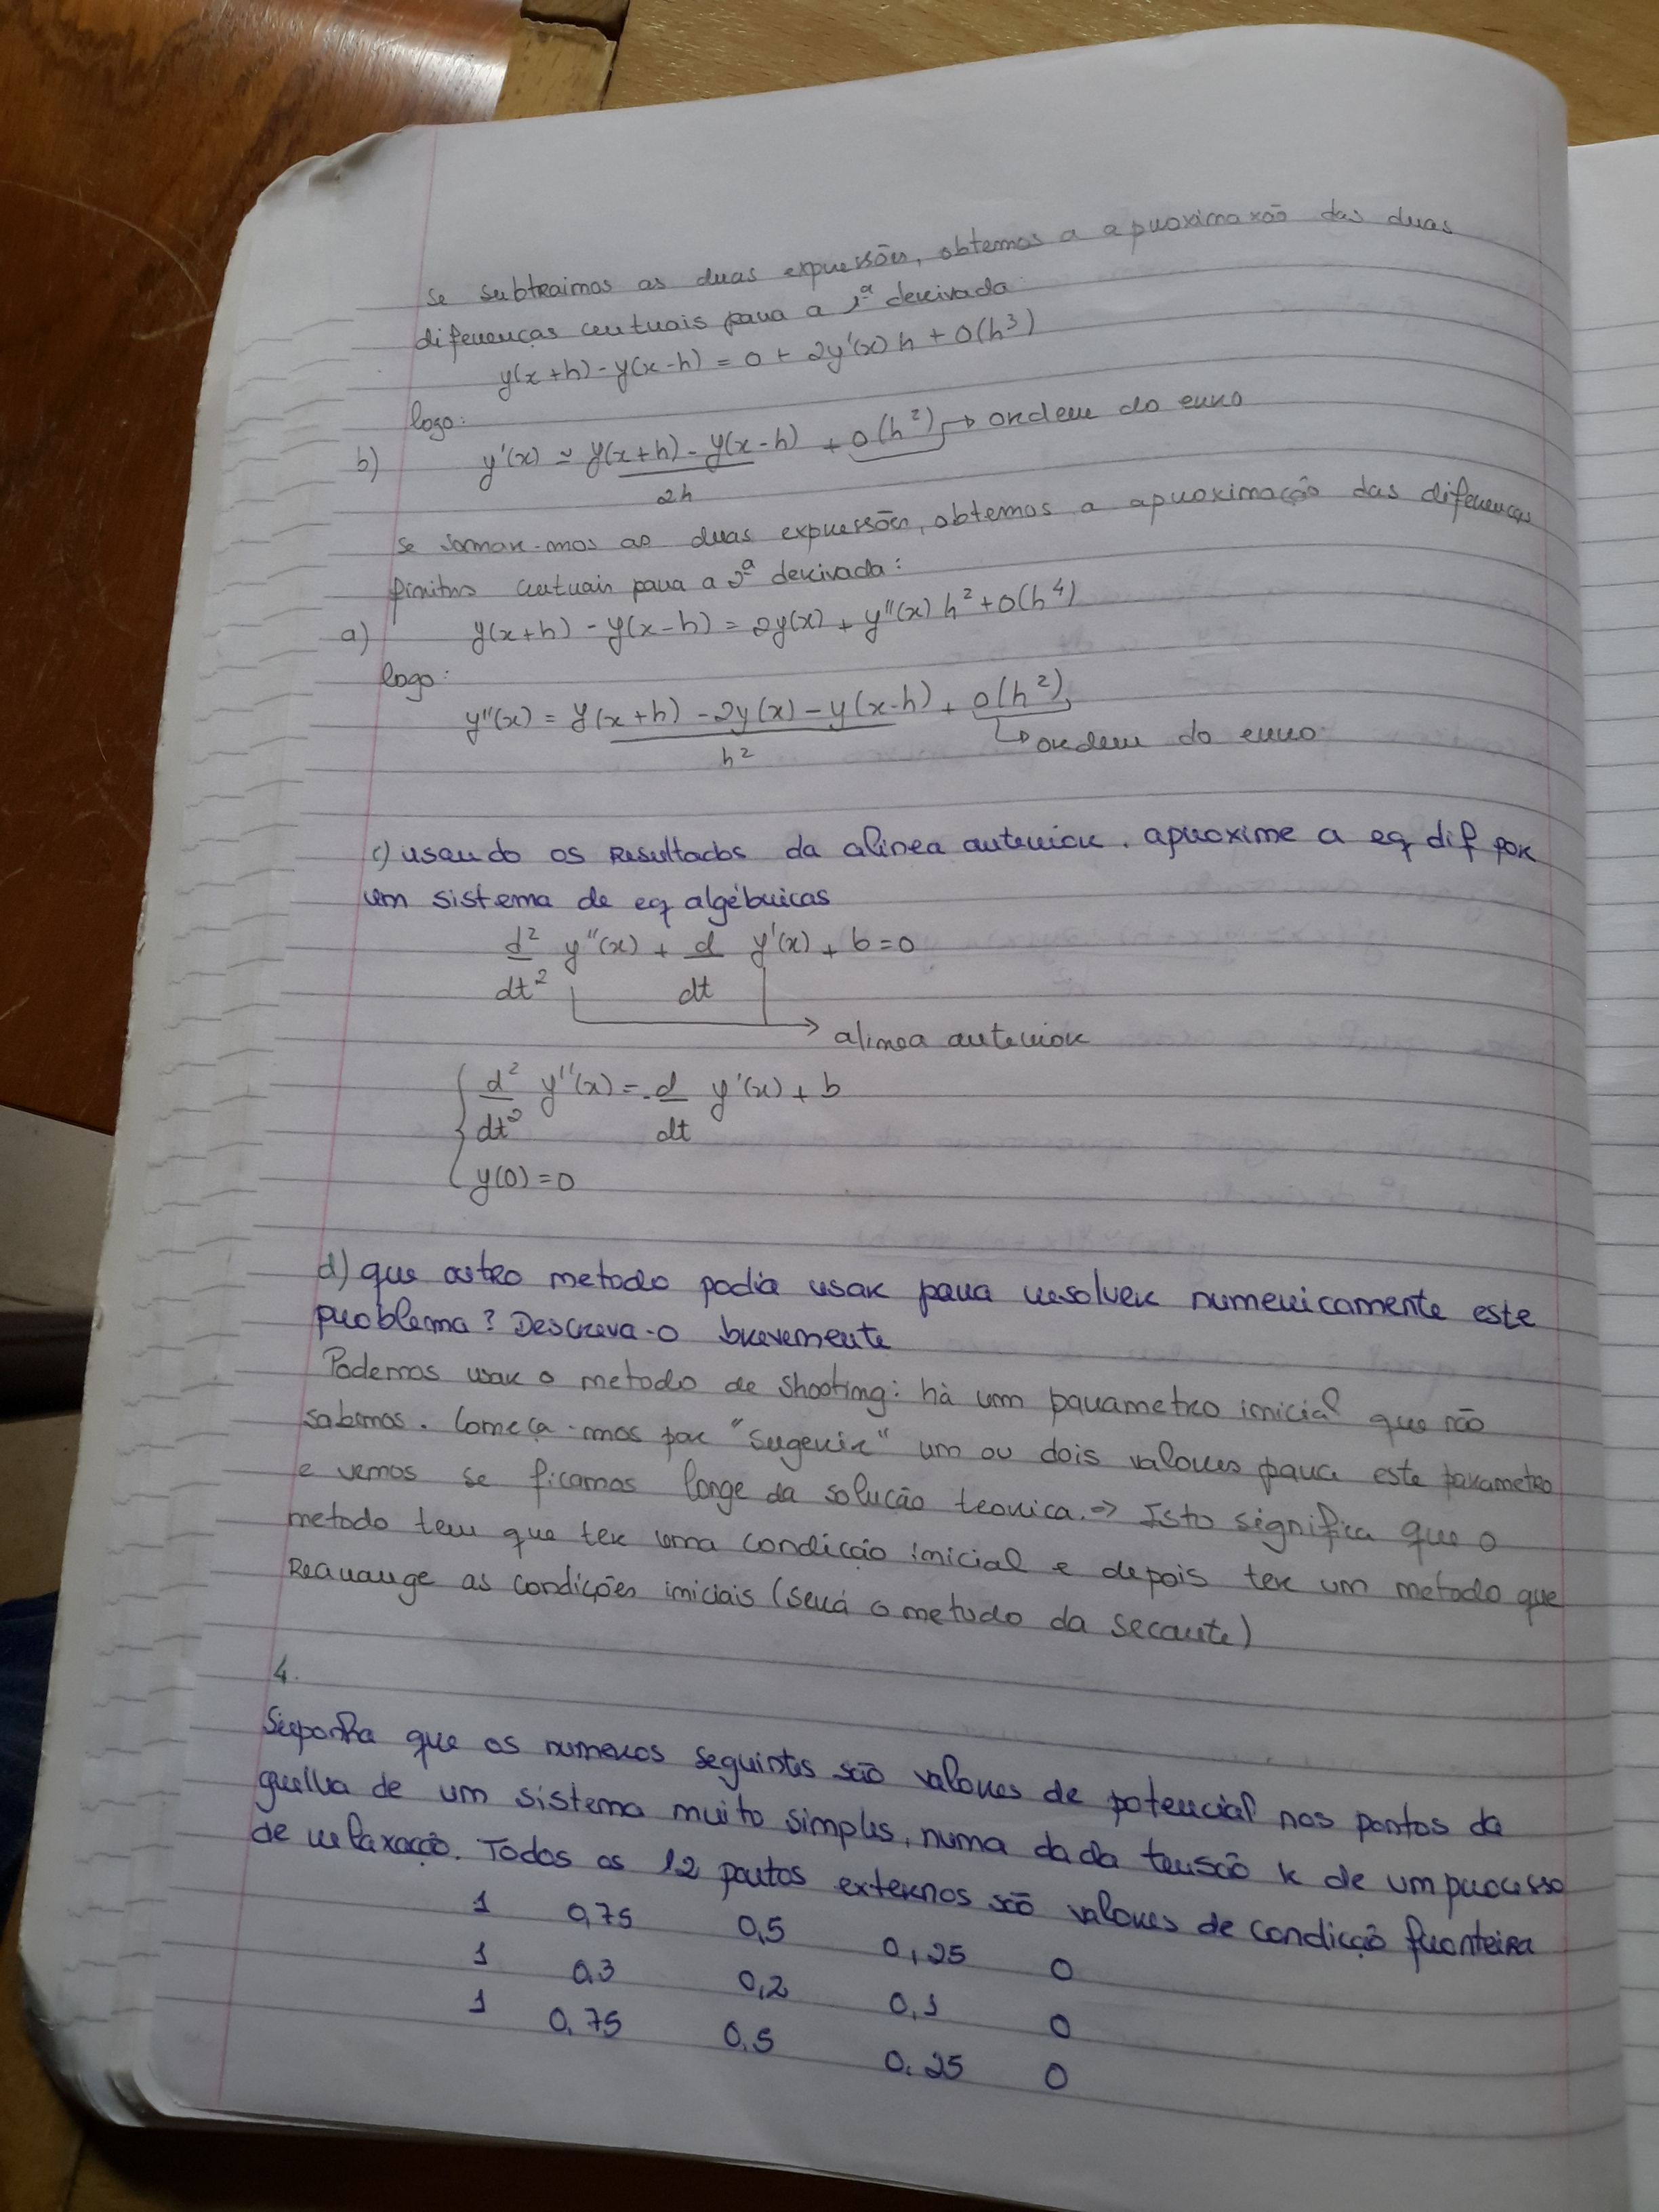 se subtraimos as duas expressões, obtemos a aproximaxão das duas
diferenças centrais para a 1ª derivada
y(x+h) - y(x-h) = 0 + 2y'(x)h + O(h³)
logo:
b) y'(x) ≃ y(x+h) - y(x-h) / 2h + O(h²) → ordem do erro
se somar-mos as duas expressões, obtemos a aproximação das diferenças
finitas centrais para a 2ª derivada:
a) y(x+h) - y(x-h) = 2y(x) + y''(x) h² + O(h⁴)
logo:
y''(x) = y(x+h) - 2y(x) - y(x-h) / h² + O(h²)
↳ ordem do erro
c) usando os resultados da alinea anterior, aproxime a eq dif por
um sistema de eq algébricas
d²/dt² y''(x) + d/dt y'(x) + b = 0
→ alinea anterior
{ d²/dt² y''(x) = - d/dt y'(x) + b
y(0) = 0
d) que outro metodo podia usar para resolver numericamente este
problema? Descreva-o brevemente
Podemos usar o metodo de shooting: há um parametro inicial que não
sabemos. Começa-mos por "sugerir" um ou dois valores para este parametro
e vemos se ficamos longe da solução teorica. ⇒ Isto significa que o
metodo tem que ter uma condição inicial e depois ter um metodo que
Rearrange as condições iniciais (será o metodo da secante)
4.
Suponha que os numeros seguintes são valores de potencial nos pontos da
grelha de um sistema muito simples, numa dada tensão k de um processo
de relaxação. Todos os 12 pontos externos são valores de condição fronteira
1 0,75 0,5 0,25 0
1 0,3 0,2 0,1 0
1 0,75 0,5 0,25 0